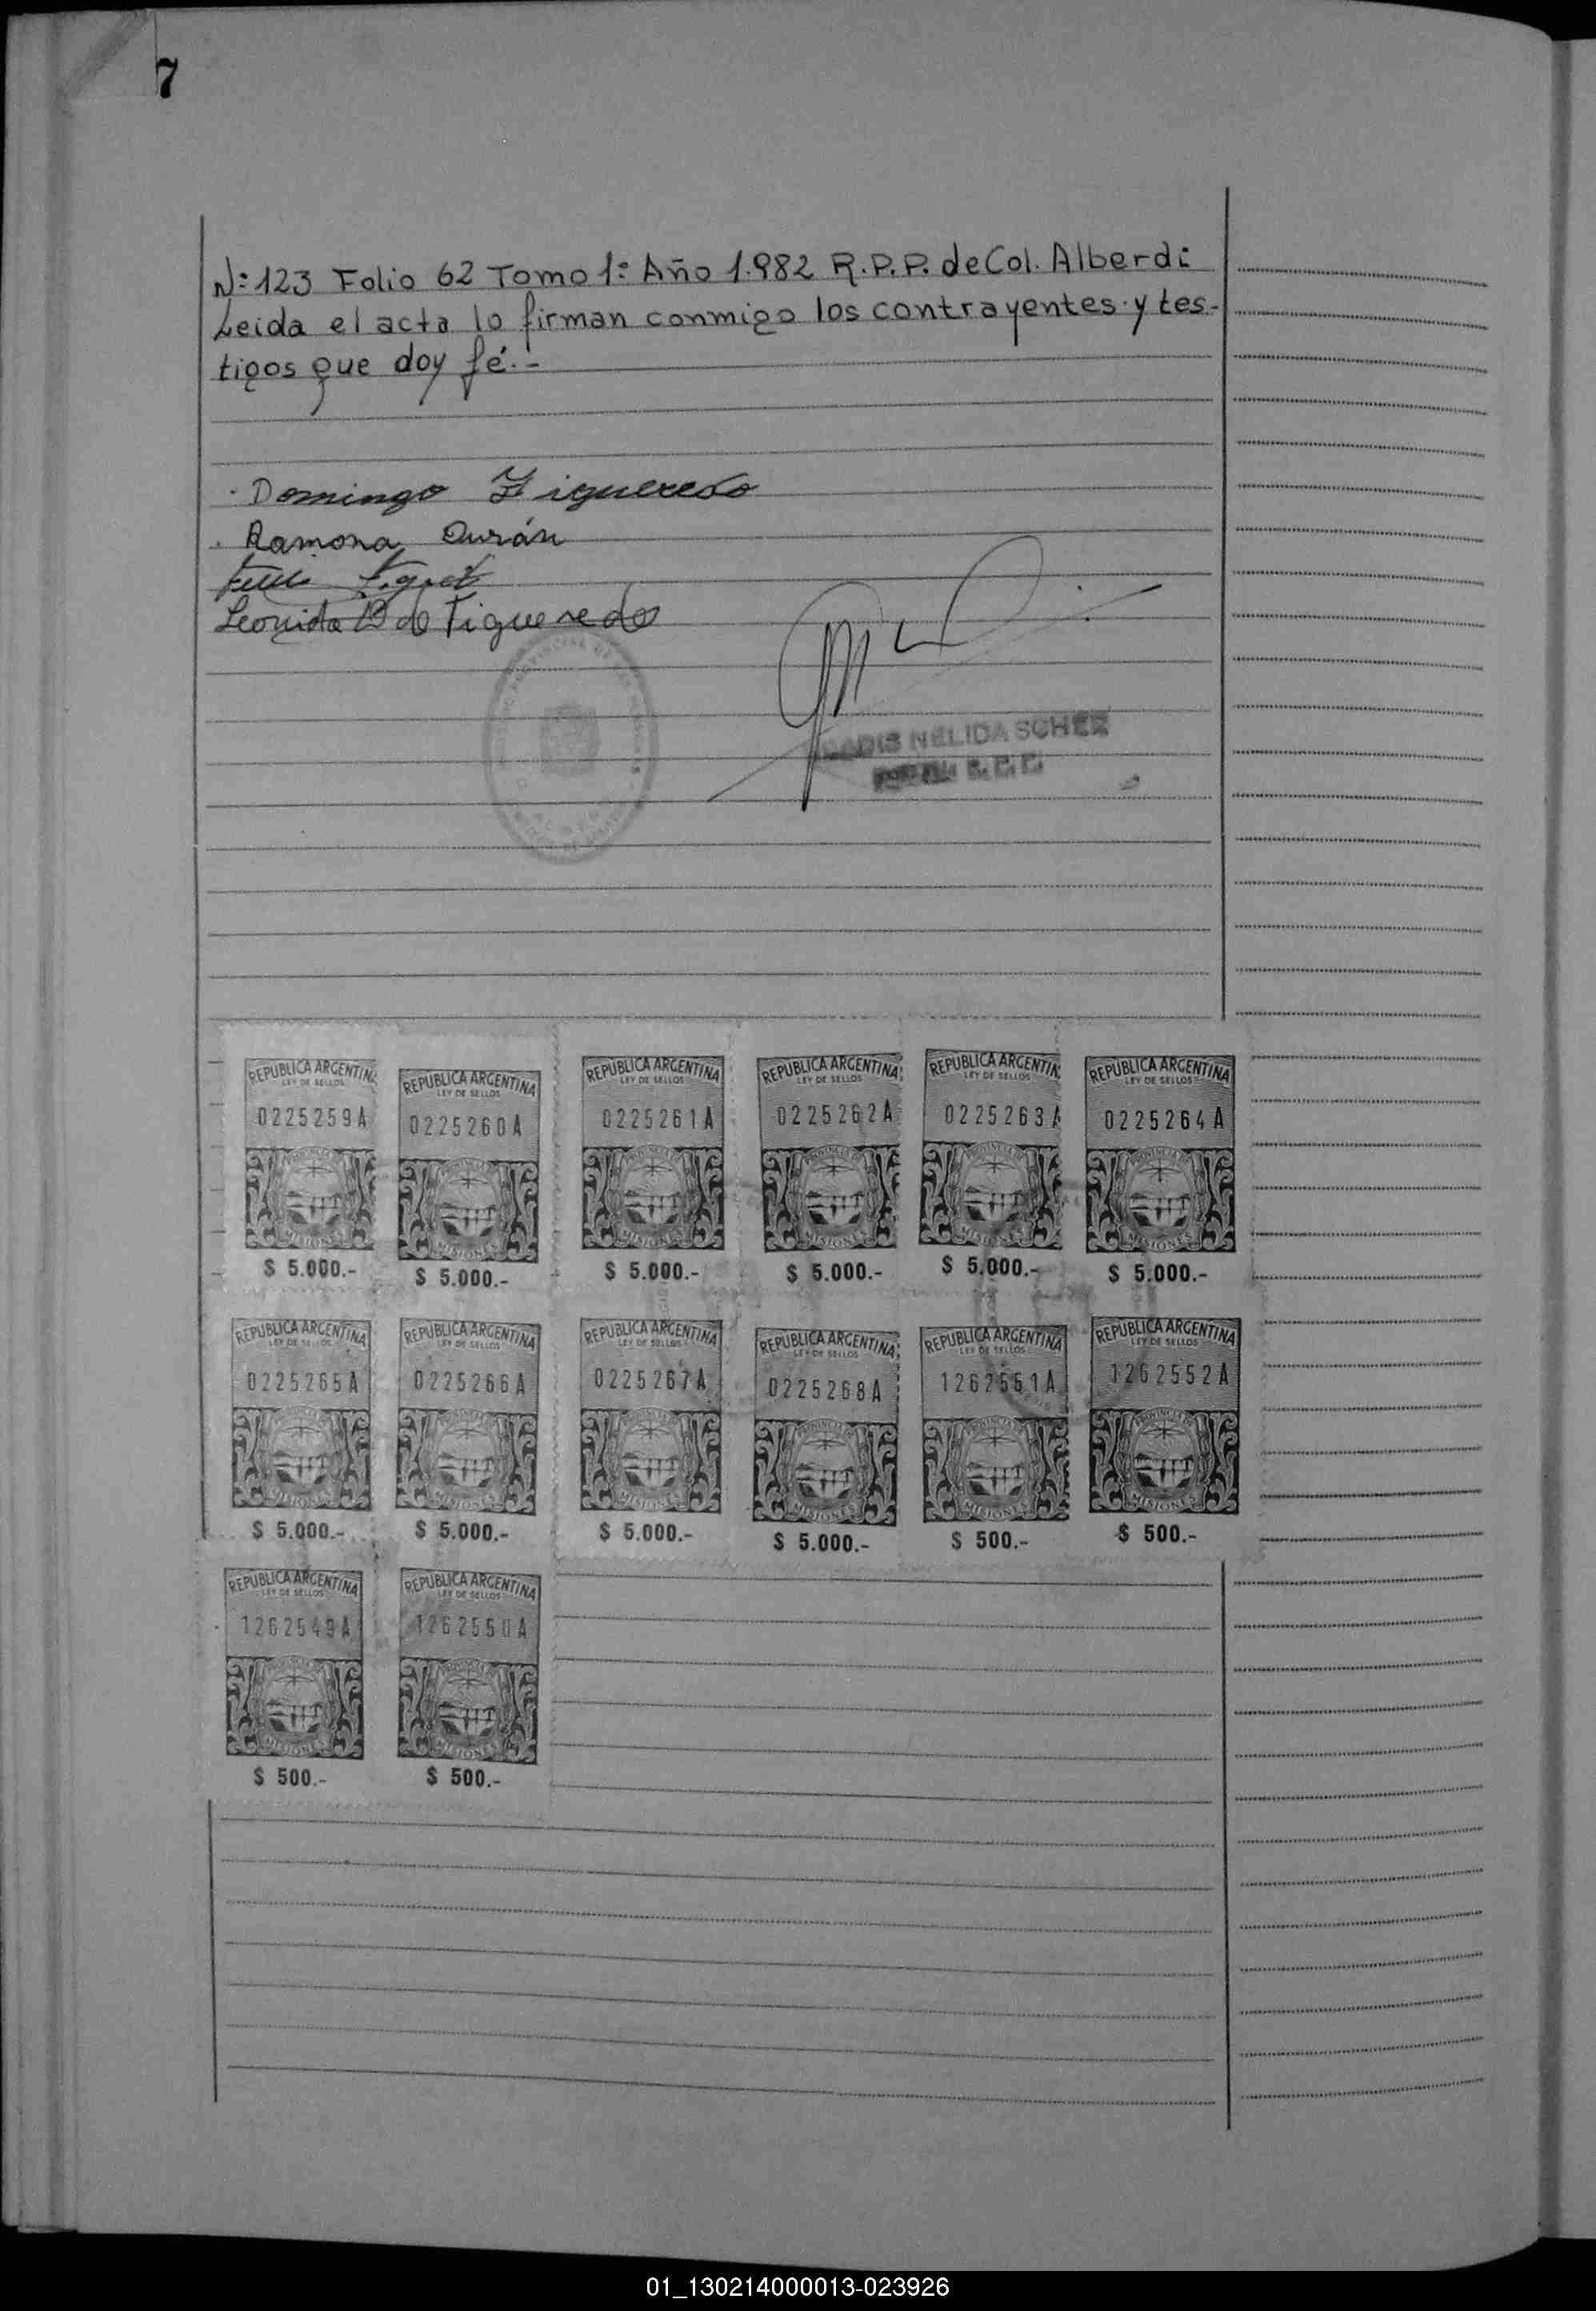 7
N:123 Folio 62 Tomo 1º Año 1.982 R.P.P. de Col. Alberdi
Leida el acta lo firman conmigo los contrayentes y tes-
tigos que doy fé.-
Domingo Figueredo
Ramona Durán
Leonida B de Figueredo
NELIDA SCHEZ
REPUBLICA ARGENTINA REPUBLICA ARGENTINA REPUBLICA ARGENTINA REPUBLICA ARGENTINA REPUBLICA ARGENTIN REPUBLICA ARGENTINA
LEY DE SELLOS LEY DE SELLOS LEY DE SELLOS LEY DE SELLOS LEY DE SELLOS LEY DE SELLOS
0225259A 0225260A 0225261A 0225262A 0225263A 0225264A
PROVINCIA DE PROVINCIA DE PROVINCIA DE PROVINCIA DE PROVINCIA DE PROVINCIA DE
MISIONES MISIONES MISIONES MISIONES MISIONES MISIONES
$ 5.000.- $ 5.000.- $ 5.000.- $ 5.000.- $ 5.000.- $ 5.000.-
REPUBLICA ARGENTINA REPUBLICA ARGENTINA REPUBLICA ARGENTINA REPUBLICA ARGENTINA REPUBLICA ARGENTINA REPUBLICA ARGENTINA
LEY DE SELLOS LEY DE SELLOS LEY DE SELLOS LEY DE SELLOS LEY DE SELLOS LEY DE SELLOS
0225265A 0225266A 0225267A 0225268A 1262551A 1262552A
PROVINCIA DE PROVINCIA DE PROVINCIA DE PROVINCIA DE PROVINCIA DE PROVINCIA DE
MISIONES MISIONES MISIONES MISIONES MISIONES MISIONES
$ 5.000.- $ 5.000.- $ 5.000.- $ 5.000.- $ 500.- $ 500.-
REPUBLICA ARGENTINA REPUBLICA ARGENTINA
LEY DE SELLOS LEY DE SELLOS
1262549A 1262550A
MISIONES MISIONES
$ 500.- $ 500.-
01_130214000013-023926